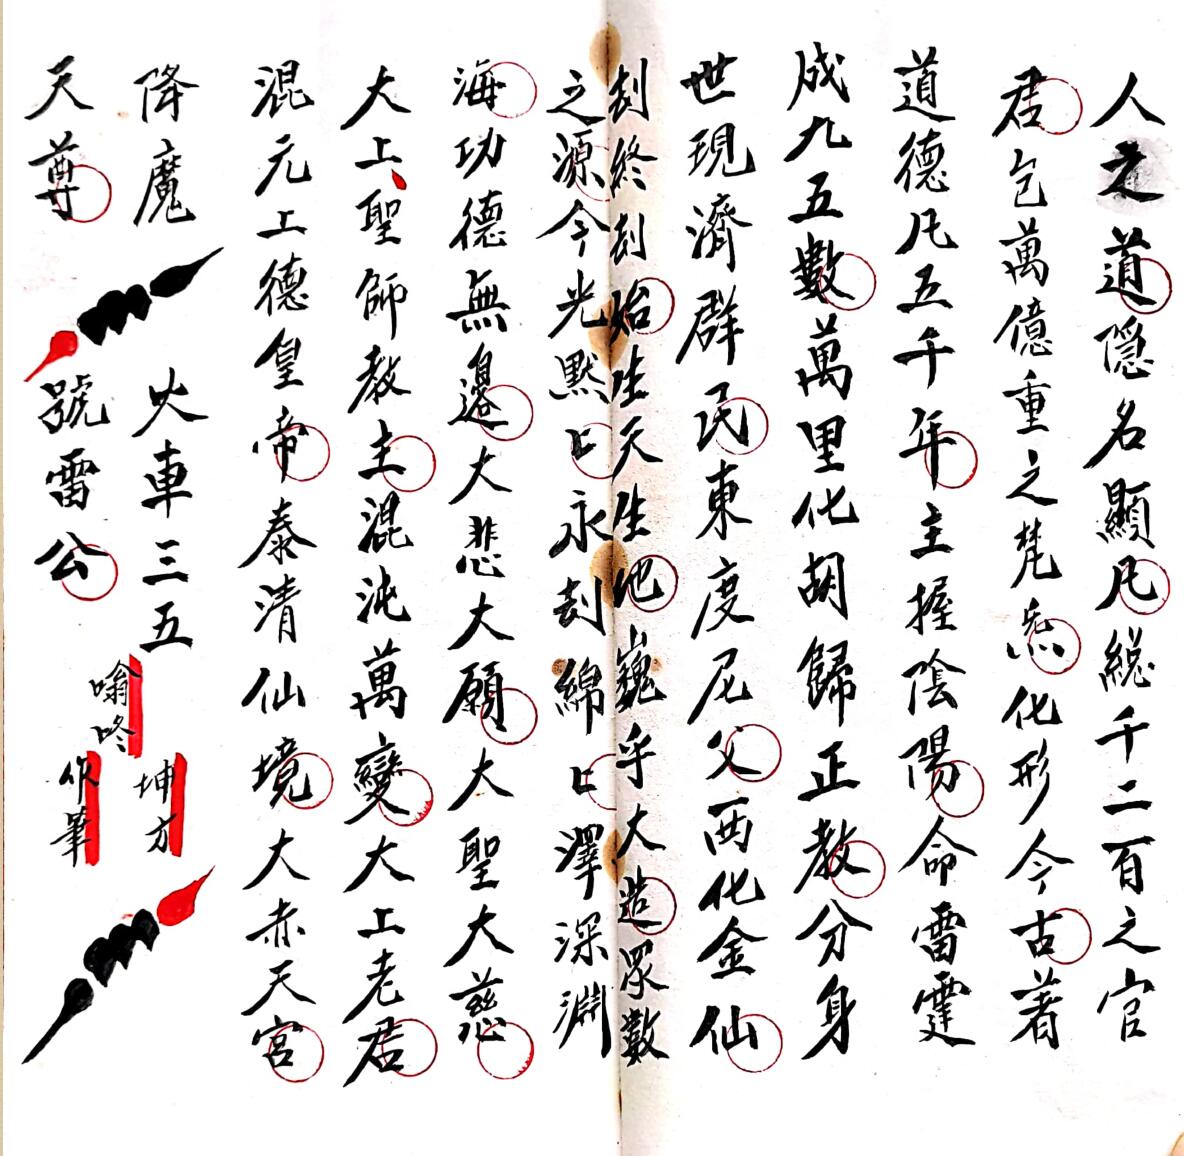 人之道隱名顯凡總千二百之官
君包萬億重之梵炁化形今古著
道德凡五千年主握陰陽命雷霆
成九五數萬里化胡歸正教分身
世現濟群民東度尼父西化金仙
刼終刼始生天生地巍乎大造眾數
之源今光默〻永刼綿〻澤深淵
海功德無邊大悲大願大聖大慈
大上聖師教主混沌萬變大上老君
混元上德皇帝泰清仙境大赤天宮
降魔
天尊
火車三五
號雷公
嗡咚
坤方
作筆